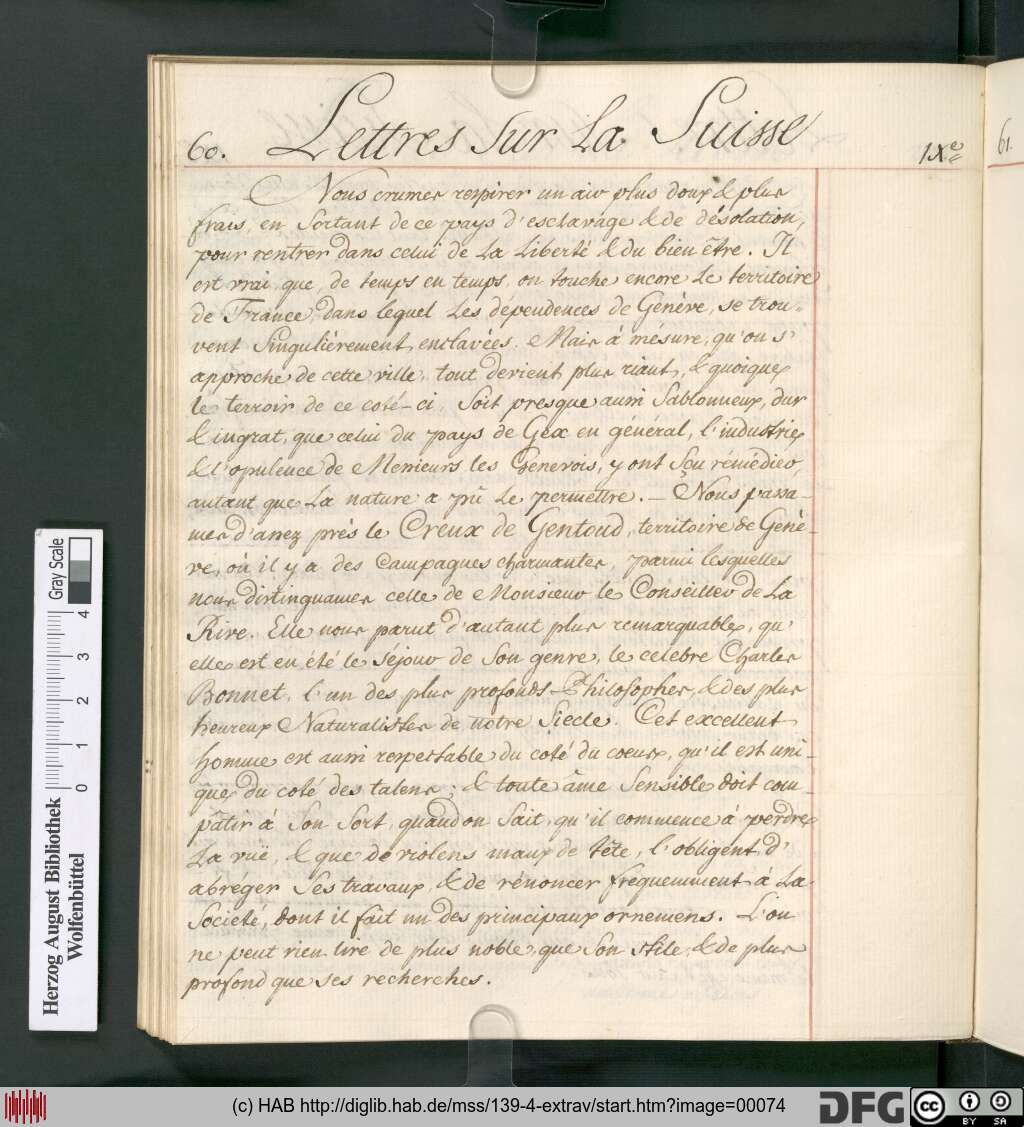 60. Lettres sur La Suisse IX.e
Nous crumes respirer un air plus doux & plus
frais, en sortant de ce pays d'esclavage & de désolation,
pour rentrer dans celui de La Liberté & du bien être. Il
est vrai que, de temps en temps, on touche encore Le territoire
de France, dans lequel Les dépendences de Genève, se trou-
vent singulièrement enclavées. Mais à mésure, qu'on s'
approche de cette ville, tout devient plus riant, & quoique
le terroir de ce coté-ci, soit presque aussi sablonneux, dur
& ingrat, que celui du pays de Gex en général, l'industrie
& l'opulence de Messieurs les Genevois, y ont sçu rémédier,
autant que La nature a pû Le permettre. – Nous passa-
mes d'assez près le Creux de Gentoud, territoire de Genè-
ve, où il y a des Campagnes charmantes, parmi lesquelles
nous distinguames celle de Monsieur le Conseiller de La
Rive. Elle nous parut d'autant plus remarquable, qu'
elle est en été le séjour de son genre, le celebre Charles
Bonnet, l'un des plus profonds Philosophes, & des plus
heureux Naturalistes de notre Siecle. Cet excellent
homme est aussi respectable du coté du coeur, qu'il est uni-
que du coté des talens; & toute âme sensible doit com-
pâtir à son sort, quand on sait, qu'il commence à perdre
La vüe, & que de violens maux de tête, l'obligent d'
abréger ses travaux, & de rénoncer fréquemment à La
Societé, dont il fait un des principaux ornemens. L'on
ne peut rien lire de plus noble, que son stile, & de plus
profond que ses recherches.
61.
Herzog August Bibliothek
Wolfenbüttel
0 1 2 3 4
Gray Scale
(c) HAB http://diglib.hab.de/mss/139-4-extrav/start.htm?image=00074
DFG
cc BY SA